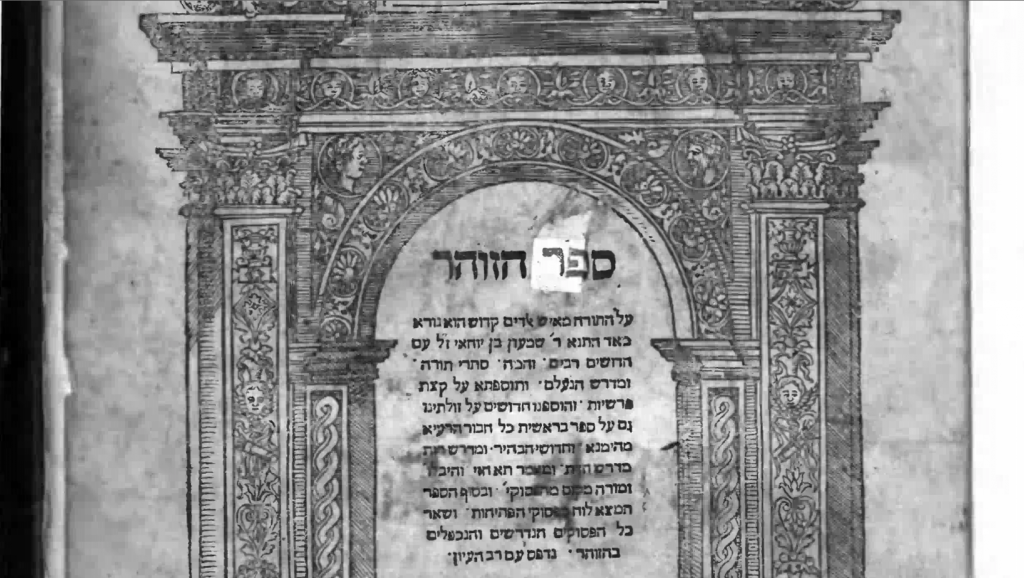 ספר הזוהר
על התורה מאיש אלדים קדוש הוא נורא
מאד התנא ר׳ שמעון בן יוחאי ז״ל עם
חדושים רבים׳ והמה׳ סתרי תורה׳
ומדרש הנעלם׳ ותוספתא על קצת
פרשיות׳ והוספנו חדושים על זולתינו
גם על ספר בראשית כל חבור הרעיא
מהימנא׳ וחדושי הבהיר׳ ומדרש רות
מדרש חזית׳ ומאמר תא חזי׳ והיכלו׳
ומורה מקום מהפסוקי׳ ובסוף הספר
תמצא לוח מפסוקי הפתיחות׳ ושאר
כל הפסוקים הנדרשים והנכפלים
בהזוהר׳ נדפס עם רב העיון׳